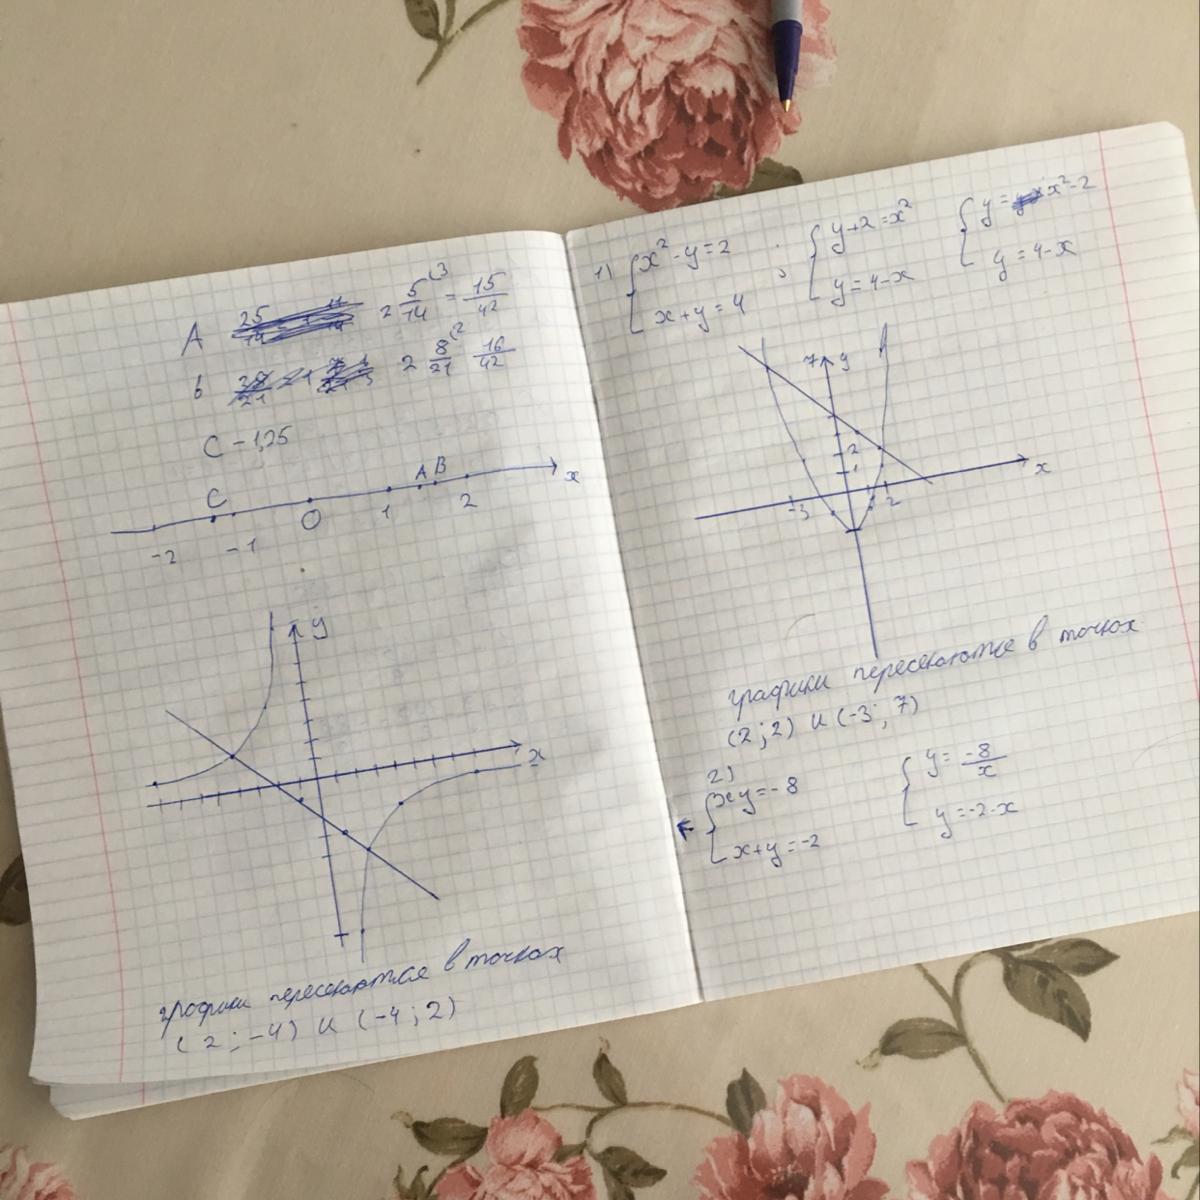 A = 5/14 (3 = 15/42
B = 8/21 (2 16/42
C - 1,25
C A B x
-2 -1 O 1 2
y
x
графики пересекаются в точках
(2 ; -4) и (-4 ; 2)
1) { x² - y = 2 ; { y + 2 = x² { y = x² - 2
x + y = 4 y = 4 - x y = 4 - x
7 y
2
1
x
-3 2
графики пересекаются в точках
(2 ; 2) и (-3 ; 7)
2)
{ xy = -8 { y = -8/x
x + y = -2 y = -2 - x